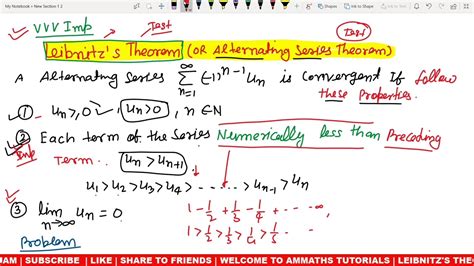 My Notebook » New Section 1 2
VVV Imp
Test
Test
Leibnitz's Theorem (OR Alternating Series Theorem)
A Alternating Series ∑_{n=1}^{∞} (-1)^{n-1} u_n is convergent If follow
these Properties.
① u_n >, 0 ✓, u_n > 0, n ∈ N
② Each term of the Series Numerically less than Preceding
Imp
Term. u_n > u_{n+1}.
u_1 > u_2 > u_3 > u_4 > ------> u_{n-1} > u_n
③ lim_{n→∞} u_n = 0
1 - 1/2 + 1/3 - 1/4 + ---- ∞,
1 > 1/2 > 1/3 > 1/4 > 1/5 - - -
Problem
JAM | SUBSCRIBE | LIKE | SHARE TO FRIENDS | WELCOME TO AMMATHS TUTORIALS | LEIBNITZ'S THE